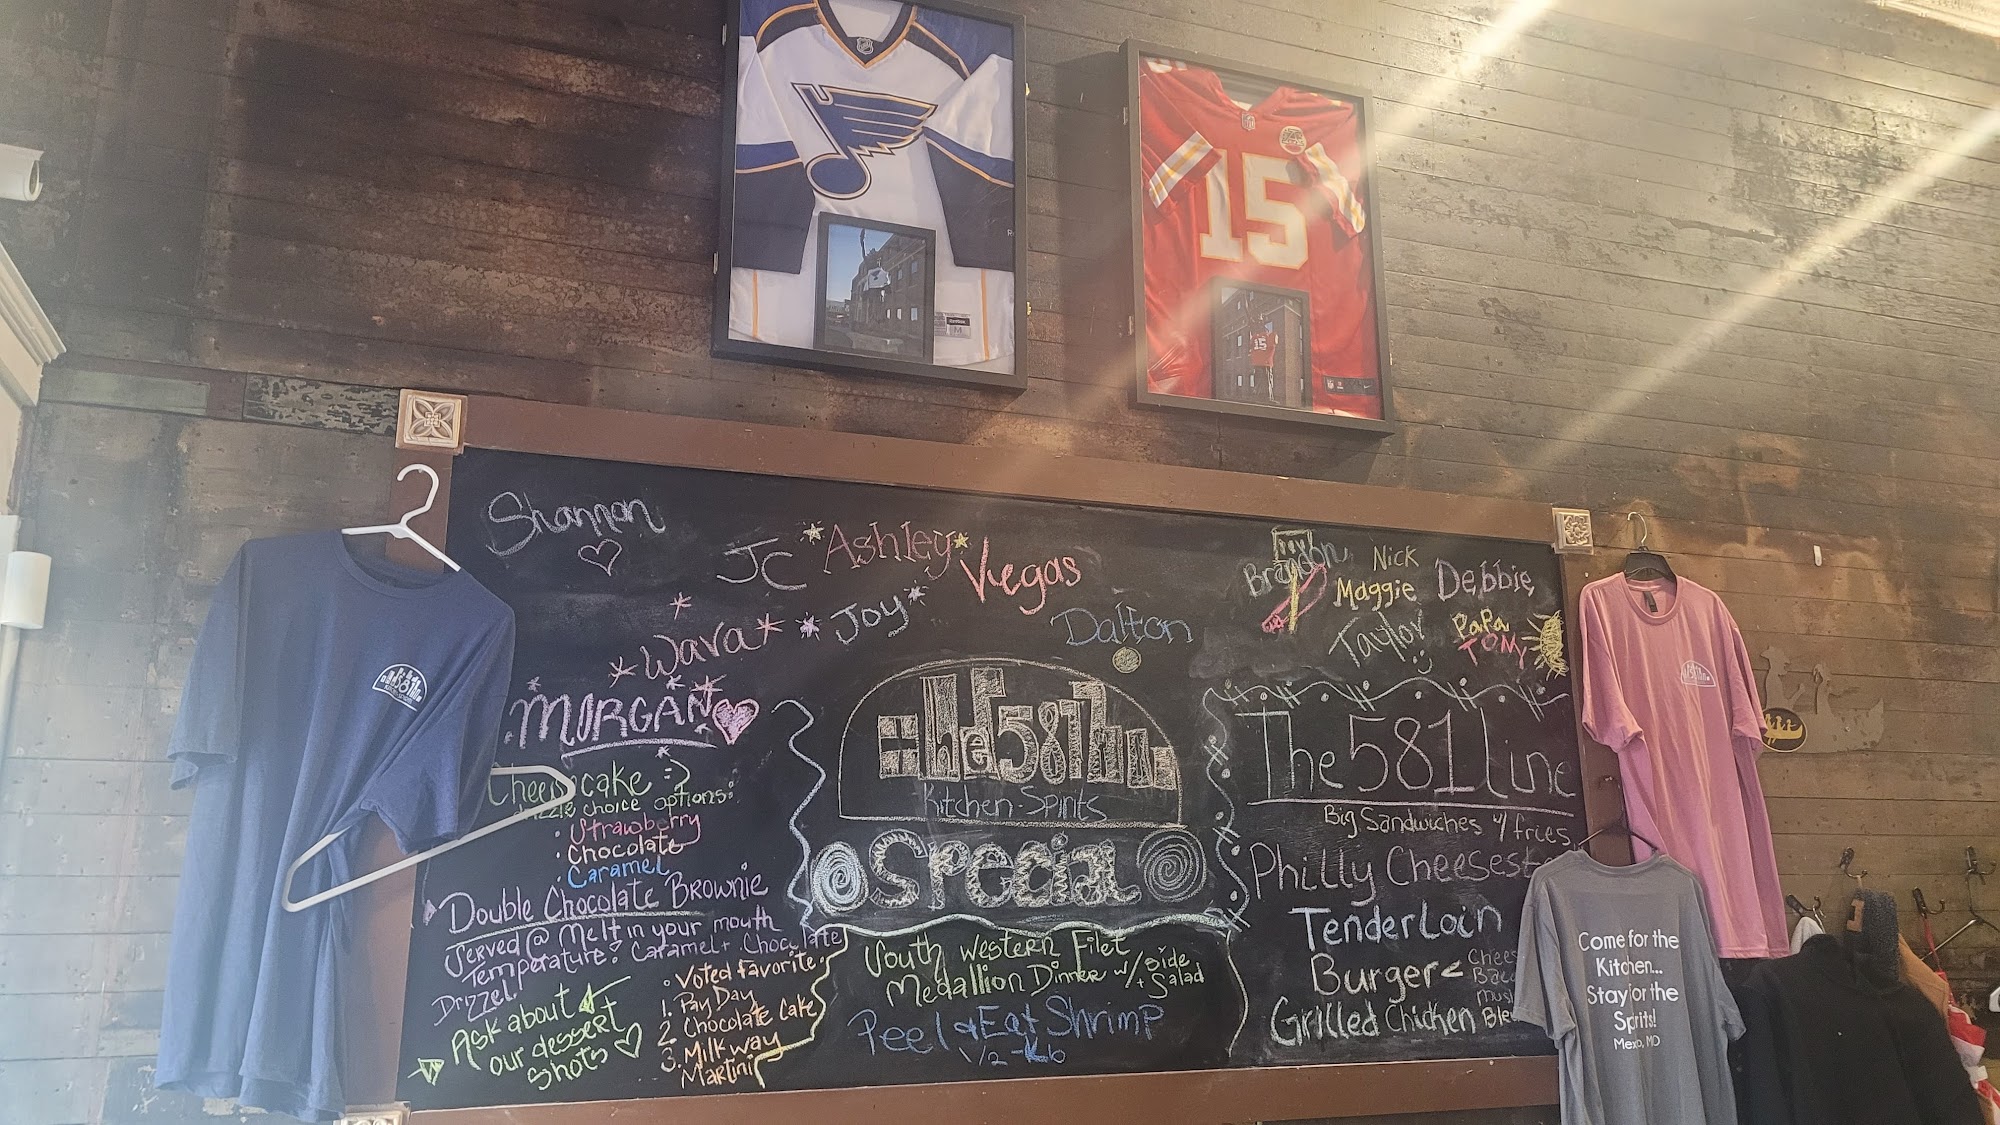 15
15
Shannon
JC
Ashley
Vegas
Wava
Joy
Dalton
Brandon
Nick
Maggie
Debbie
Taylor
PaPa
Tony
MORGAN
Cheesecake :)
drizzle choice options:
• Strawberry
• Chocolate
• Caramel
Double Chocolate Brownie
Served @ Melt in your mouth
Temperature: Caramel + Chocolate
Drizzel.
Ask about
our dessert
shots
• Voted favorite:
1. Pay Day
2. Chocolate Cake
3. Milkway
Martini
the 581
Kitchen • Spirits
Special
South Western Filet
Medallion Dinner w/ side
+ Salad
Peel & Eat Shrimp
1/2 - lb
The 581 line
Big Sandwiches w/ fries
Philly Cheesest
Tenderloin
Burger
Chees
Baco
mush
Bleu
Grilled Chicken
581
Come for the
Kitchen...
Stay for the
Spirits!
Mexico, MO